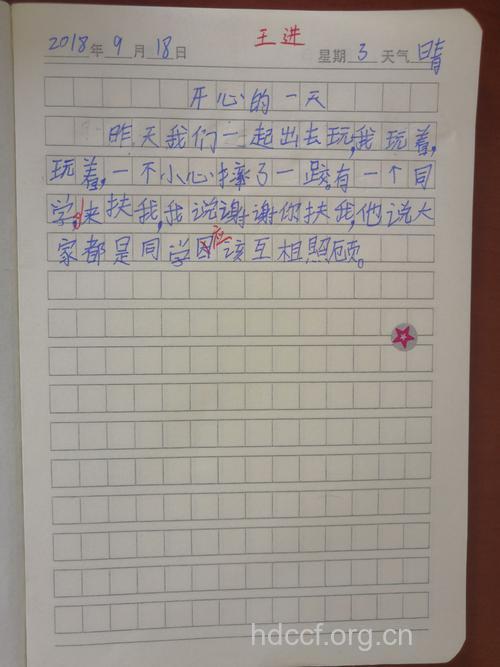 王进
2018年9月18日 星期3天气晴
开心的一天
昨天我们一起出去玩,我玩着,
玩着,一不小心摔了一跤。有一个同
学,来扶我,我说谢谢你扶我,他说大
家都是同学因应该互相照顾。
hdccf.org.cn